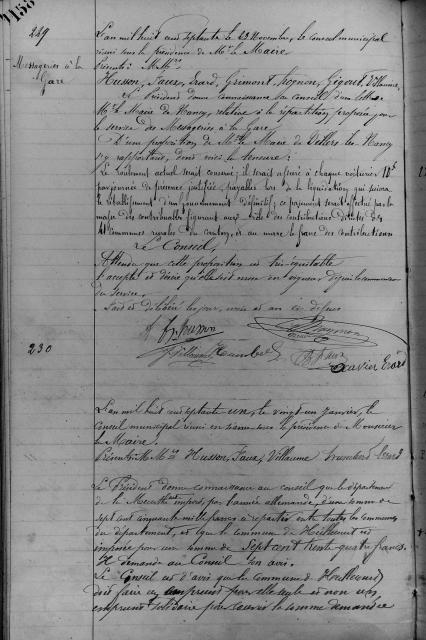 229
Messageries à la
Gare
L'an mil huit cent septante le 23 Novembre, le conseil municipal
réuni sous la présidence de Mr. le Maire
Présents: M.M.
Husson, Faux, Erard, Grimont, Hognon, Gigout, Villaume,
Le Président donne connaissance au conseil d'une lettre
Mr. le Maire de Nancy, relative à la répartition proposée pour
le service des Messageries à la Gare
D'une proposition de Mr. le Maire de Villers-les-Nancy
s'y rapportant, dont voici la teneur:
Le roulement actuel serait conservé; il serait assuré à chaque voiturier 10 f
par journée de présence justifiée, payables lors de la liquidation qui suivra
le rétablissement d'un gouvernement définitif; ce payement serait effectué par la
masse des contribuables figurant aux rôles des contributions directes des
communes rurales du canton, et au marc le franc des contributions
Le Conseil,
Attendu que cette proposition est très équitable
l'accepte et désire qu'elle soit mise en vigueur depuis le commencement
du service.
Fait et délibéré les jour, mois et an ci-dessus
Husson
Hognon
Villaume
Humbert
Faux
Xavier Erard
230
L'an mil huit cent septante un, le vingt un janvier, le
Conseil municipal réuni en sous la présidence de Monsieur
le Maire.
Présents M.M. Husson, Faux, Villaume Erard
Le Président donne connaissance au conseil que le département
de la Meurthe est imposé, par l'armée allemande, d'une somme de
sept cent cinquante mille francs à répartir entre toutes les communes
du département, et que la commune de Houdemont est
imposée pour une somme de Sept cent trente quatre francs.
Il demande au Conseil son avis.
Le Conseil est d'avis que la commune d'Houdemont
doit faire un emprunt pour elle seule et non un
emprunt solidaire pour couvrir la somme demandée